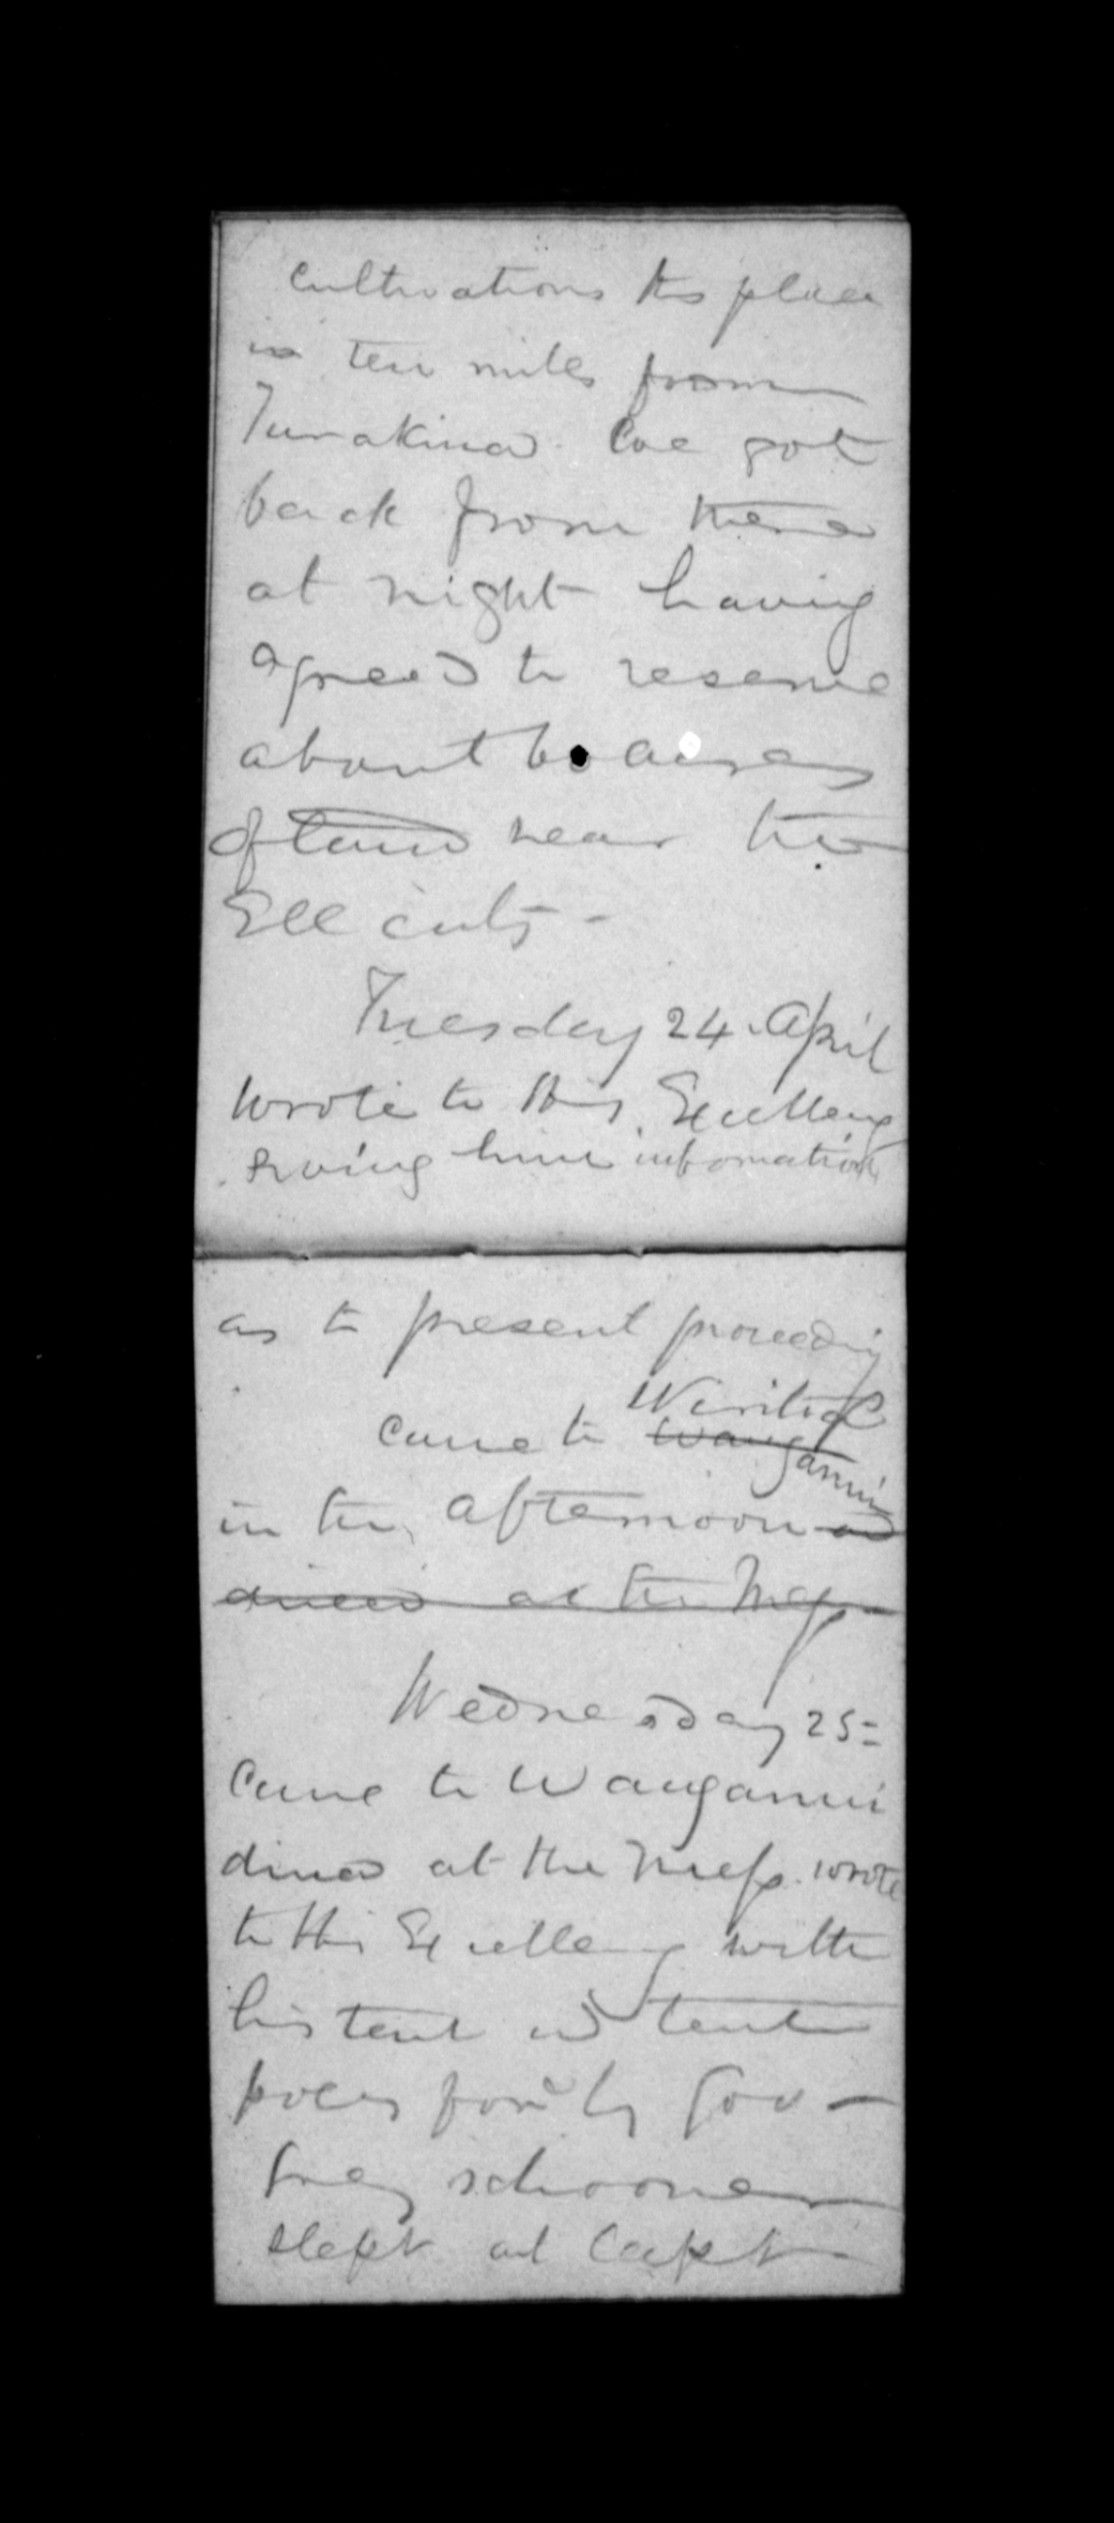 cultivations this place
is ten miles from
Turakina. We got
back from there
at night having
agreed to reserve
about 60 acres
of land near the
Eel cuts -
Tuesday 24 April
Wrote to His Excellency
giving him information
as to present proceeding
Wiritoa
came to Wanganui
in the afternoon and
dined at the Mess
Wednesday 25=
Came to Wanganui
dined at the Mess. wrote
to His Excellency with
his tent and tent
poles by Gov -
Grey schooner
slept at Capt